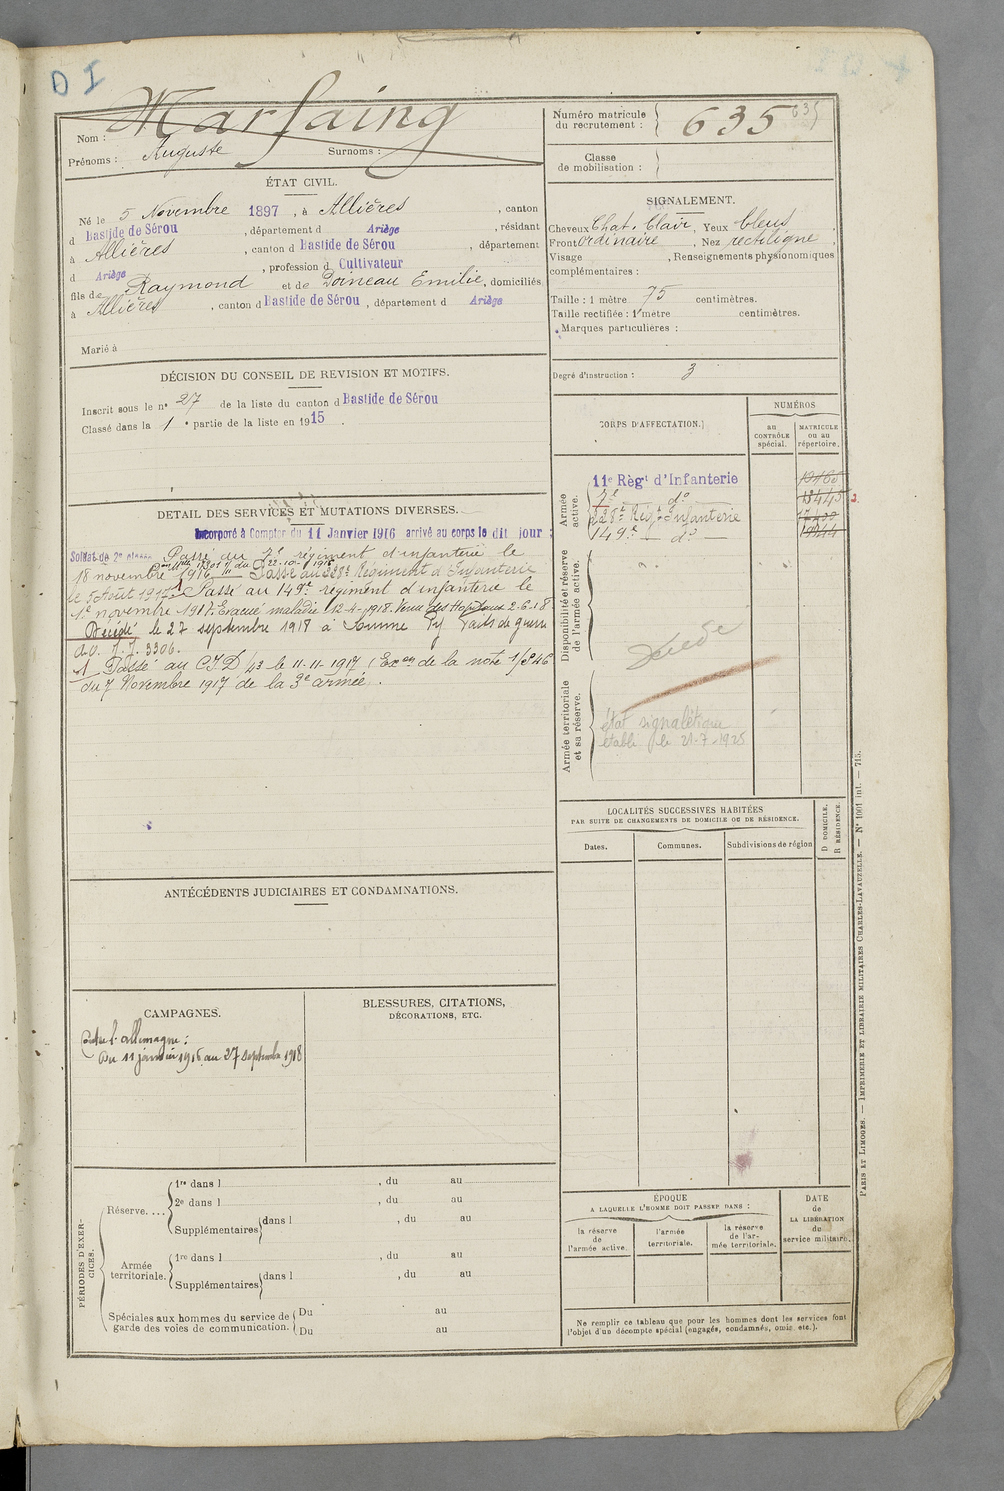 D I
Nom : Marfaing
Prénoms : Auguste Surnoms :
ÉTAT CIVIL.
Né le 5 Novembre 1897, à Allières, canton
d Bastide de Sérou, département d Ariège, résidant
à Allières, canton d Bastide de Sérou, département
d Ariège, profession d Cultivateur
fils de Raymond et de Doineau Emilie, domiciliés
à Allières, canton d Bastide de Sérou, département d Ariège
Marié à
DÉCISION DU CONSEIL DE REVISION ET MOTIFS.
Inscrit sous le n° 27 de la liste du canton d Bastide de Sérou
Classé dans la 1 e partie de la liste en 1915.
DÉTAIL DES SERVICES ET MUTATIONS DIVERSES.
Incorporé à Compter du 11 Janvier 1916 arrivé au corps le dit jour :
Soldat de 2e classe Passé au 7e régiment d'infanterie le
du 22-10-1916
18 novembre 1916 - Passé au 228e Régiment d'Infanterie
le 5 Août 1917. Passé au 149e régiment d'infanterie le
1er novembre 1917. Evacué maladie 12-4-1918. Venu des Hopitaux 2-6-18
Décédé le 27 septembre 1918 à Somme Py Faits de guerre
a.v. J.J. 3306.
1 Passé au C.I.D/43 le 11.11.1917 (Exon de la note 1/846
du 7 Novembre 1917 de la 3e armée.
ANTÉCÉDENTS JUDICIAIRES ET CONDAMNATIONS.
CAMPAGNES.
Contre l'allemagne :
Du 11 janvier 1916 au 27 septembre 1918
BLESSURES, CITATIONS,
DÉCORATIONS, ETC.
PÉRIODES D'EXERCICES.
Réserve....
1re dans l , du au
2e dans l , du au
Supplémentaires dans l , du au
Armée territoriale.
1re dans l , du au
Supplémentaires dans l , du au
Spéciales aux hommes du service de garde des voies de communication.
Du au
Du au
Numéro matricule
du recrutement : 635 635
Classe
de mobilisation :
SIGNALEMENT.
Cheveux Chat. Clair, Yeux bleus
Front ordinaire, Nez rectiligne
Visage , Renseignements physionomiques
complémentaires :
Taille : 1 mètre 75 centimètres.
Taille rectifiée : 1 mètre centimètres.
Marques particulières :
Degré d'instruction : 3
CORPS D'AFFECTATION.
NUMÉROS
au
CONTRÔLE
spécial.
MATRICULE
ou au
répertoire.
Armée
active.
11e Règt d'Infanterie
7e do
228e Régt Infanterie
149e do
Disponibilité et réserve
de l'armée active.
Décédé
Armée territoriale
et sa réserve.
état signalétique
établi le 21-7-1925
LOCALITÉS SUCCESSIVES HABITÉES
PAR SUITE DE CHANGEMENTS DE DOMICILE OU DE RÉSIDENCE.
D DOMICILE.
R RÉSIDENCE.
Dates. Communes. Subdivisions de région
ÉPOQUE
A LAQUELLE L'HOMME DOIT PASSER DANS :
la réserve
de
l'armée active.
l'armée
territoriale.
la réserve
de l'ar-
mée territoriale.
DATE
de
LA LIBÉRATION
du
service militaire.
Ne remplir ce tableau que pour les hommes dont les services font
l'objet d'un décompte spécial (engagés, condamnés, omis, etc.).
PARIS ET LIMOGES. — IMPRIMERIE ET LIBRAIRIE MILITAIRES CHARLES-LAVAUZELLE. — N° 1001 int. — 715.